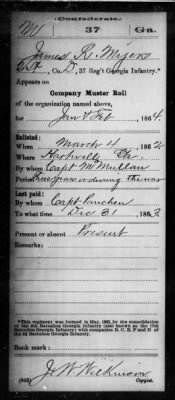 Confederate.
M 37 Ga.
James R. Myers
Co. D, 37 Reg't Georgia Infantry.*
Appears on
Company Muster Roll
of the organization named above,
for Jan & Feb, 1864.
Enlisted:
When March 4, 1862
Where Ga.
By whom Capt McMullan
Period 3 years or during the war
Last paid:
By whom Capt
To what time Dec 31, 1863
Present or absent Present
Remarks:
*This regiment was formed in May, 1863, by the consolidation
of the 3d Battalion Georgia Infantry (also known as the 17th
Battalion Georgia Infantry) with companies B, C, E, F and H of
the 9th Battalion Georgia Infantry.
Book mark:
(642)
J. W. Wilkinson
Copyist.